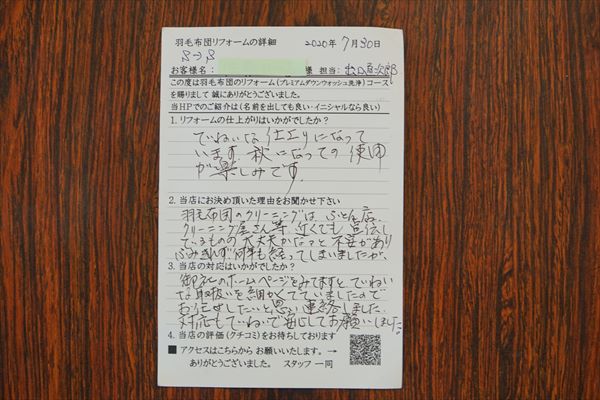 羽毛布団リフォームの詳細 2020年7月30日
S→S
お客様名: 様 担当:
この度は羽毛布団のリフォーム(プレミアムダウンウォッシュ洗浄)コース
を賜りまして 誠にありがとうございました。
当HPでのご紹介は(名前を出しても良い・イニシャルなら良い)
1. リフォームの仕上がりはいかがでしたか?
ていねいな仕上りになって
います。秋になっての使用
が楽しみです。
2. 当店にお決め頂いた理由をお聞かせ下さい
羽毛布団のクリーニングは、ふとん店、
クリーニング屋さん等、近くでも宣伝し
ているものの大丈夫かな?と不安があり
ふみきれず何年も経ってしまいましたが、
3. 当店の対応はいかがでしたか?
御社のホームページをみてますと、ていねい
な取扱いを細かくていましたので
お任せしたいと思い連絡しました。
対応もていねいで安心してお願いしました
4. 当店の評価(クチコミ)をお待ちしております
■ アクセスはこちらから お願いいたします。→
ありがとうございました。 スタッフ 一同